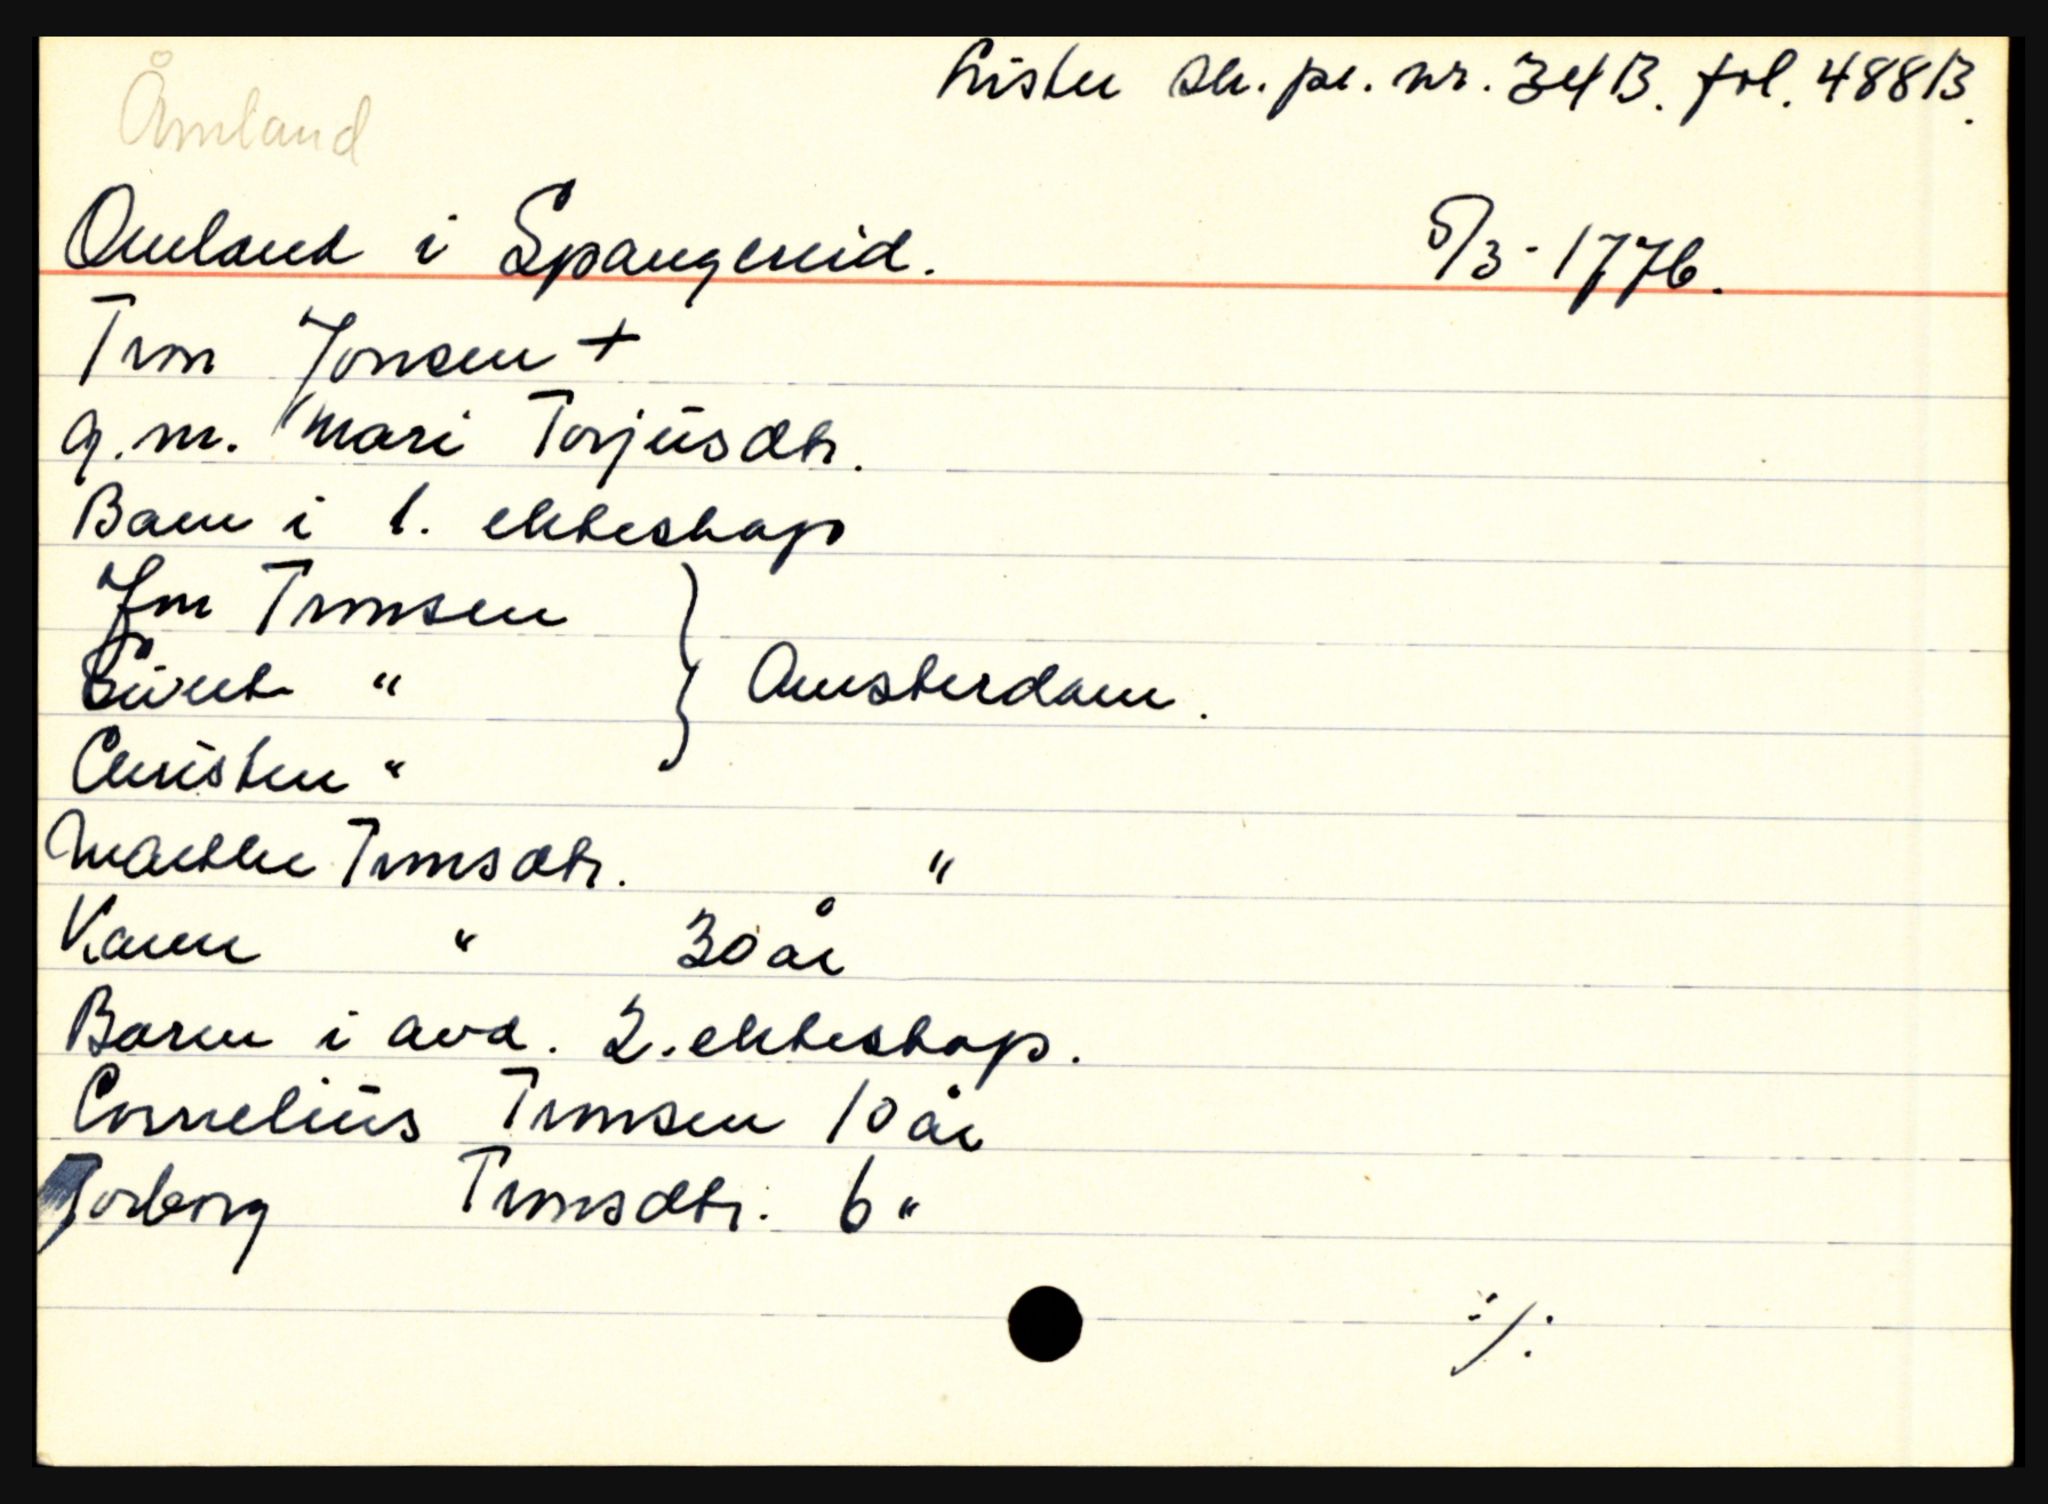 Åmland
Lister sk. pr. nr. 34 B. fol. 488B.
Omland i Spangereid. 5/3-1776.
Tron Jonsen +
g. m. Mari Torjusdtr.
Barn i 1. ekteskap
Jon Tronsen
Sivert " } Amsterdam.
Christen "
Marthe Tronsdtr. "
Karen " 30 år
Barn i avd. 2. ekteskap.
Cornelius Tronsen 10 år
Torborg Tronsdtr. 6 "
·/.